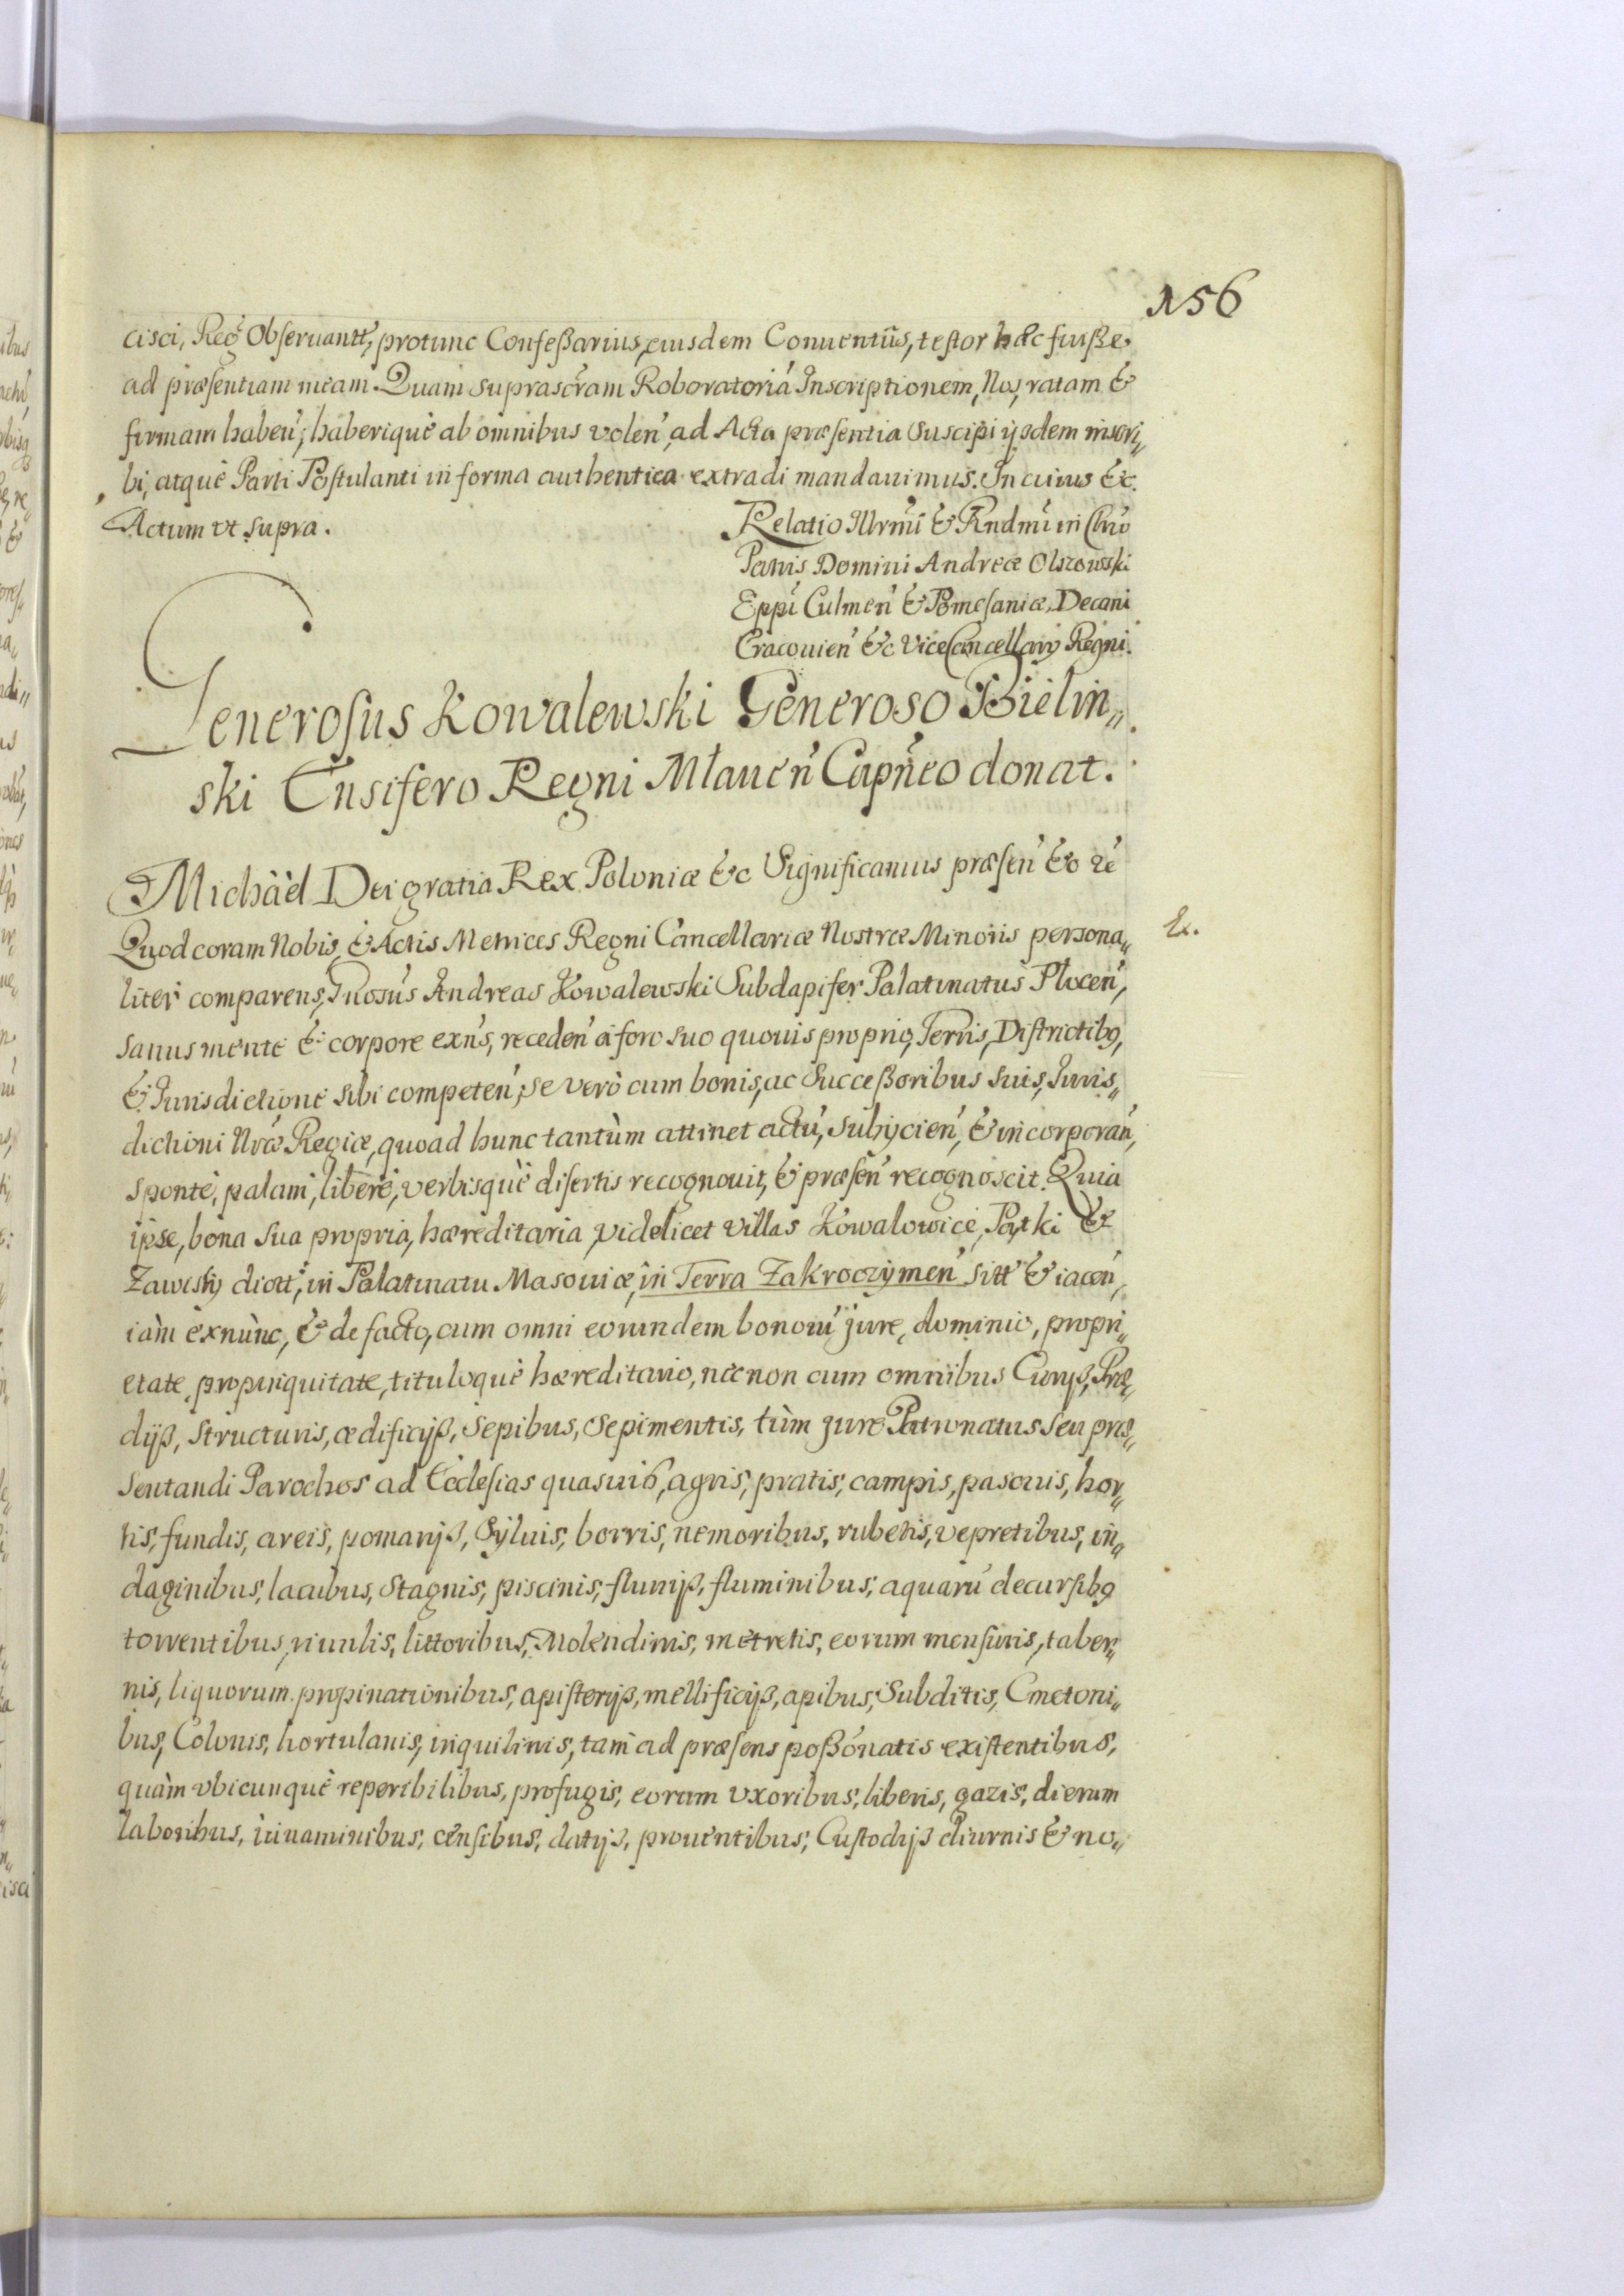 156
cisci, Reg Obseruantt, protunc Confeßarius, eiusdem Conuentûs, testor hæc fuiße
ad præsentiam meam. Quam suprascram Roboratoriá Inscriptionem, Nos, ratam &
firmam habeń, haberiquè ab omnibus voleń, ad Acta præsentia suscipi ijsdem inscri„
bi, atquè Parti Postulanti in forma authentica extradi mandauimus. In cuius &c.
Actum vt supra.
Relatio Illrmi & Rndmi in Chro
Patris Domini Andreæ Olszowski
Eppi Culmeń & Pomesaniæ, Decani
Cracouień &c ViceCancellarij Regni.
Generosus Kowalewski Generoso Bielin„
ski Ensifero Regni Mlaueń Capneo donat.
Michàèl Dei gratia Rex Poloniæ &c Significamus præseń &c
Quod coram Nobis, & Actis Metrices Regni Cancellariæ Nostræ Minoris persona„
liter comparens, Gnosus Andreas Kowalewski Subdapifer Palatinatus Ploceń,
sanus mente & corpore exns, recedeń à foro suo quouis proprio, Terris, Districtibg,
& Jurisdictione sibi competeń; se verò cum bonis, ac Succeßoribus suis, Juris„
dictioni Nræ Regiæ, quoad hunc tantùm attinet actú, subijcień, & incorporań,
sponte, palam, liberè, verbisquè disertis recognouit, & præseń recognoscit. Quia
ipse, bona sua propria, hæreditaria, videlicet villas Kowalowice, Pątki &
Zawisty dictt, in Palatinatu Masouiæ, in Terra Zakroczymeń sitt & iaceń,
iàm exnùnc, & de facto, cum omni eorundem bonorú jure, dominio, propri„
etate, propinquitate, tituloquè hæreditario, necnon cum omnibus Curijs, Præ„
dijß, structuris, ædificijß, sepibus, sepimentis, tùm jure Patronatus seu præ„
sentandi Parochos ad Ecclesias quasuis, agris, pratis, campis, pascuis, hor„
tis, fundis, areis, pomarijß, Syluis, borris, nemoribus, rubetis, vepretibus, in„
daginibus, lacubus, stagnis, piscinis, fluuijß, fluminibus, aquarú decursibg
torrentibus, riuulis, littoribus, Molendinis, metretis, eorum mensuris, taber„
nis, liquorum propinationibus, apisterijß, mellificijß, apibus, Subditis, Cmetoni„
bus, Colonis, hortulanis, inquilinis, tam ad præsens poßonatis existentibus,
quàm vbicunquè reperibilibus, profugis, eorum vxoribus, liberis, gazis, dierum
laboribus, iuuaminibus, censibus, datijß, prouentibus, Custodijß diurnis & no„